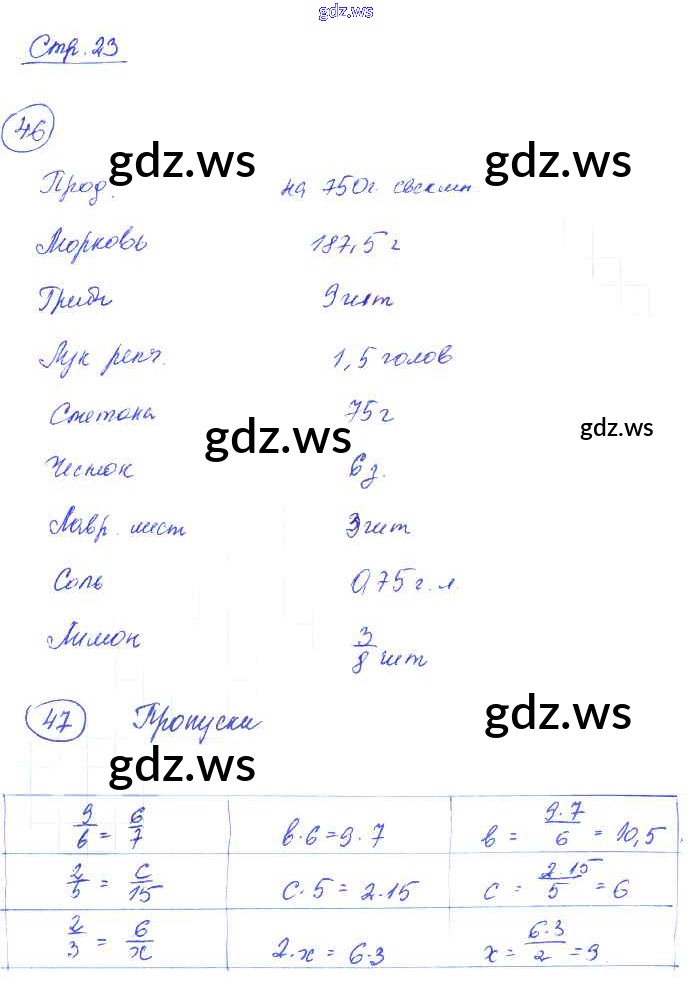 gdz.ws
Стр. 23
46
gdz.ws gdz.ws
Прод. на 750г. свеклы
Морковь 187,5 г
Грибы 9 шт
Лук репч. 1,5 голов
Сметана 75 г
gdz.ws gdz.ws
Чеснок 6 д.
Лавр. лист 3 шт
Соль 0,75 г. л.
Лимон 3/8 шт
47 Пропуски
gdz.ws
gdz.ws
9/6 = 6/7 в·6=9·7 в = 9·7/6 = 10,5
2/5 = с/15 с·5=2·15 с = 2·15/5 = 6
2/3 = 6/x 2·x = 6·3 x = 6·3/2 = 9